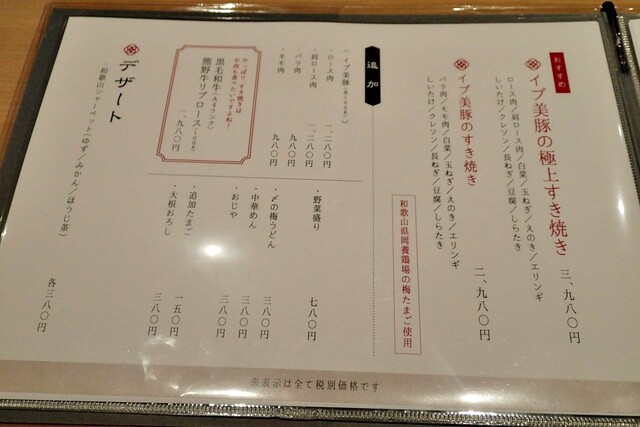 おすすめ
イブ美豚の極上すき焼き
ロース肉／肩ロース肉／白菜／玉ねぎ／えのき／エリンギ
しいたけ／クレソン／長ねぎ／豆腐／しらたき
三、九八〇円
イブ美豚のすき焼き
バラ肉／モモ肉／白菜／玉ねぎ／えのき／エリンギ
しいたけ／クレソン／長ねぎ／豆腐／しらたき
二、九八〇円
和歌山県岡養鶏場の梅たまご使用
追加
〈イブ美豚(各100g)〉
・ロース肉 一、二八〇円
・肩ロース肉 一、二八〇円
・バラ肉 九八〇円
・モモ肉 九八〇円
やっぱり、すき焼きは
牛肉も食べたいですよね！
黒毛和牛(A4ランク)
熊野牛リブロース(100g)
一、九八〇円
・野菜盛り 七八〇円
・〆の梅うどん 三八〇円
・中華めん 三八〇円
・おじや 三八〇円
・追加たまご 一五〇円
・大根おろし 三八〇円
デザート
・和歌山シャーベット(ゆず／みかん／ほうじ茶) 各三八〇円
※表示は全て税別価格です